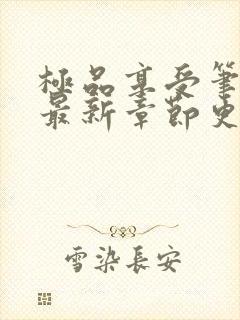 極品享受筆
最新章節史
雪染長安